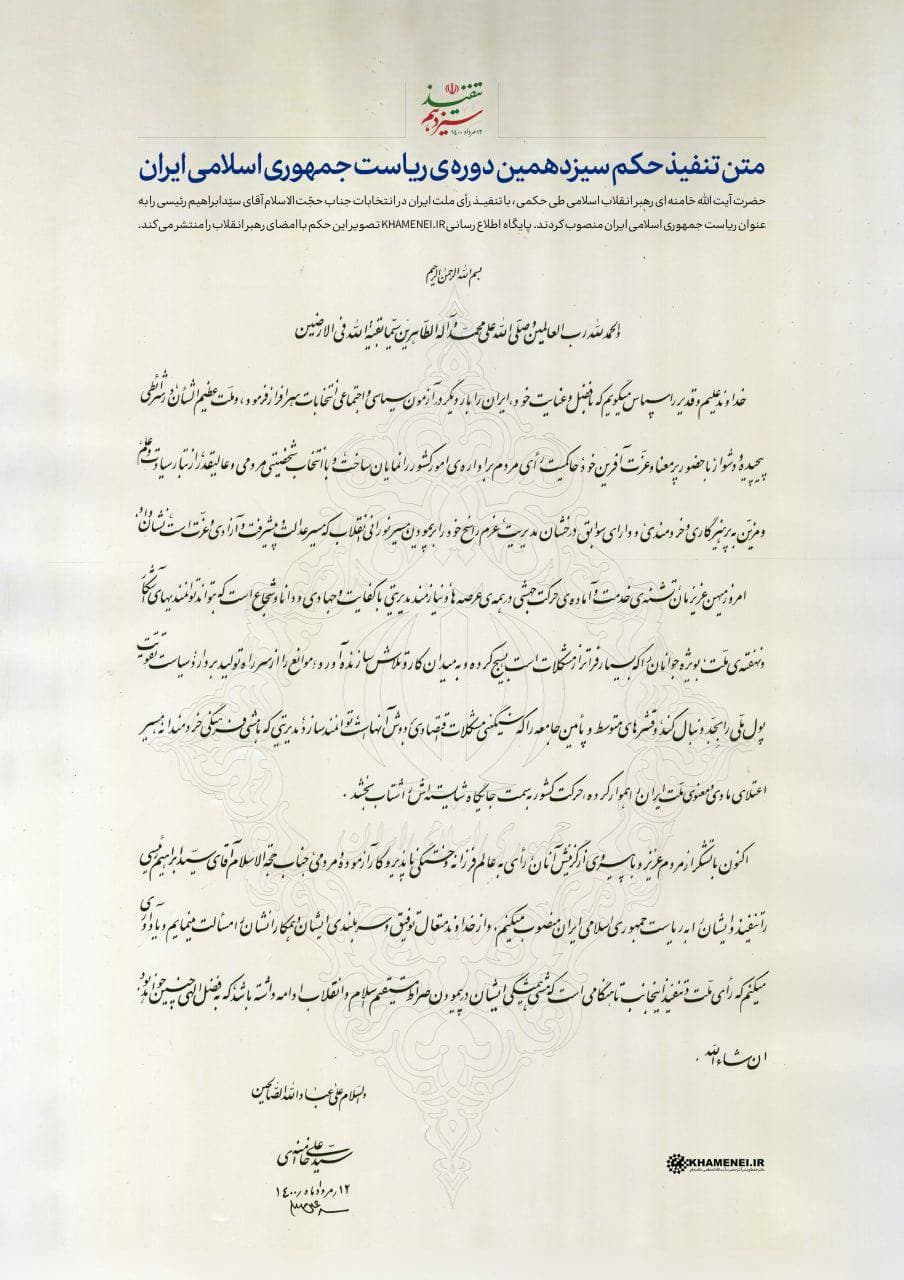 تنفیذ
سیزدهم
۱۲ مرداد ۱۴۰۰
متن تنفیذ حکم سیزدهمین دوره‌ی ریاست جمهوری اسلامی ایران
حضرت آیت الله خامنه ای رهبر انقلاب اسلامی طی حکمی، با تنفیـذ رأی ملت ایران در انتخابات جناب حجّت الاسلام آقای سیّدابراهیم رئیسی را به
عنوان ریاست جمهوری اسلامی ایران منصوب کردند. پایگاه اطلاع رسانی KHAMENEI.IR تصویر این حکم با امضای رهبر انقلاب را منتشر می‌کند.
بسم الله الرحمن الرحیم
والحمد لله رب العالمین و صلّی الله علی محمّد و آله الطّاهرین سیّما بقیّة الله فی الارضین
خداوند علیم و قدیر را سپاس میگویم که با فضل و عنایت خود، ایران را بار دیگر در آزمون سیاسی و اجتماعی انتخابات سرافراز فرمود، و ملّت عظیم الشأن در شرائطی
پیچیده و دشوار با حضور پرمعنا و عزّت آفرین خود حاکمیت رأی مردم بر اداره‌ی امور کشور را نمایان ساخت و با انتخاب شخصیتی مردمی و عالیقدر از تبار سیادت و علم
و مزیّن به پرهیزگاری و خردمندی و دارای سوابق درخشان مدیریت عزم راسخ خود را بر پیمودن مسیر نورانی انقلاب که مسیر عدالت و پیشرفت و آزادی و عزّت است نشان داد.
امروز میهن عزیزمان تشنه‌ی خدمت و آماده‌ی حرکت جهشی در همه‌ی عرصه ها و نیازمند مدیریتی با کفایت و جهادی و دانا و شجاع است که بتواند توانمندیهای آشکار
و نهفته‌ی ملّت بویژه جوانان را که بسیار فراتر از مشکلات است بسیج کرده و به میدان کار و تلاش سازنده آورد؛ موانع را از سر راه تولید بردارد؛ سیاست تقویت
پول ملّی را بجد دنبال کند و قشرهای متوسط و پائین جامعه را که سنگینی مشکلات اقتصادی بر دوش آنهاست توانمند سازد؛ مدیریتی که با مشی فرهنگی خردمندانه مسیر
اعتلای مادی و معنوی ملّت ایران را هموار کرده، حرکت کشور به سمت جایگاه شایسته‌اش را شتاب بخشد.
اکنون با تشکّر از مردم عزیز و با پیروی از گزینش آنان رأی به عالم فرزانه و خستگی ناپذیر و کارآزموده و مردمی جناب حجة الاسلام آقای سیّد ابراهیم رئیسی
را تنفیذ و ایشان را به ریاست جمهوری اسلامی ایران منصوب میکنم. و از خداوند متعال توفیق و سربلندی ایشان و همکارانشان را مسألت مینمایم و یادآوری
میکنم که رأی ملّت و تنفیذ اینجانب تا هنگامی است که مشی همیشگی ایشان در پیمودن صراط مستقیم اسلام و انقلاب ادامه داشته باشد که به فضل الهی چنین خواهد بود
ان شاء الله.
والسّلام علی عباد الله الصّالحین
سیّد علی خامنه‌ای
۱۲ مرداد ماه ۱۴۰۰
KHAMENEI.IR